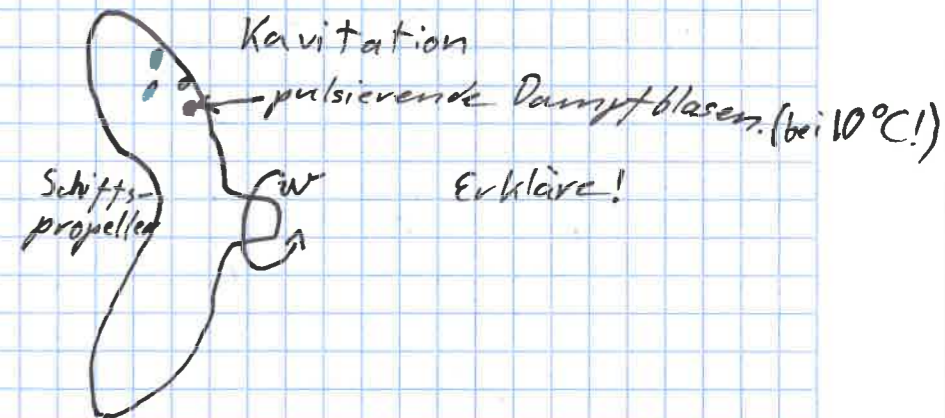 Kavitation
pulsierende Dampfblasen. (bei 10°C!)
Schiffs-
propeller
w
Erkläre!